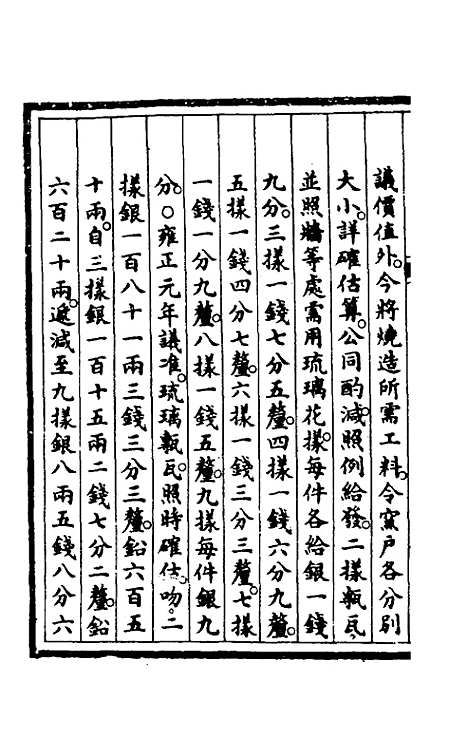 議價值外。今將燒造所需工料。令窰戶各分別
大小。詳確估算。公同酌減。照例給發。二樣瓶瓦。
並照牆等處需用琉璃花樣。每件各給銀一錢
九分。三樣一錢七分五釐。四樣一錢六分九釐。
五樣一錢四分七釐。六樣一錢三分三釐。七樣
一錢一分九釐。八樣一錢五釐。九樣每件銀九
分。○雍正元年議准。琉璃瓶瓦。照時確估。吻。二
樣銀一百八十一兩三錢三分三釐。鉛六百五
十兩。自三樣銀一百十五兩二錢七分二釐。鉛
六百二十兩。遞減至九樣銀八兩五錢八分六